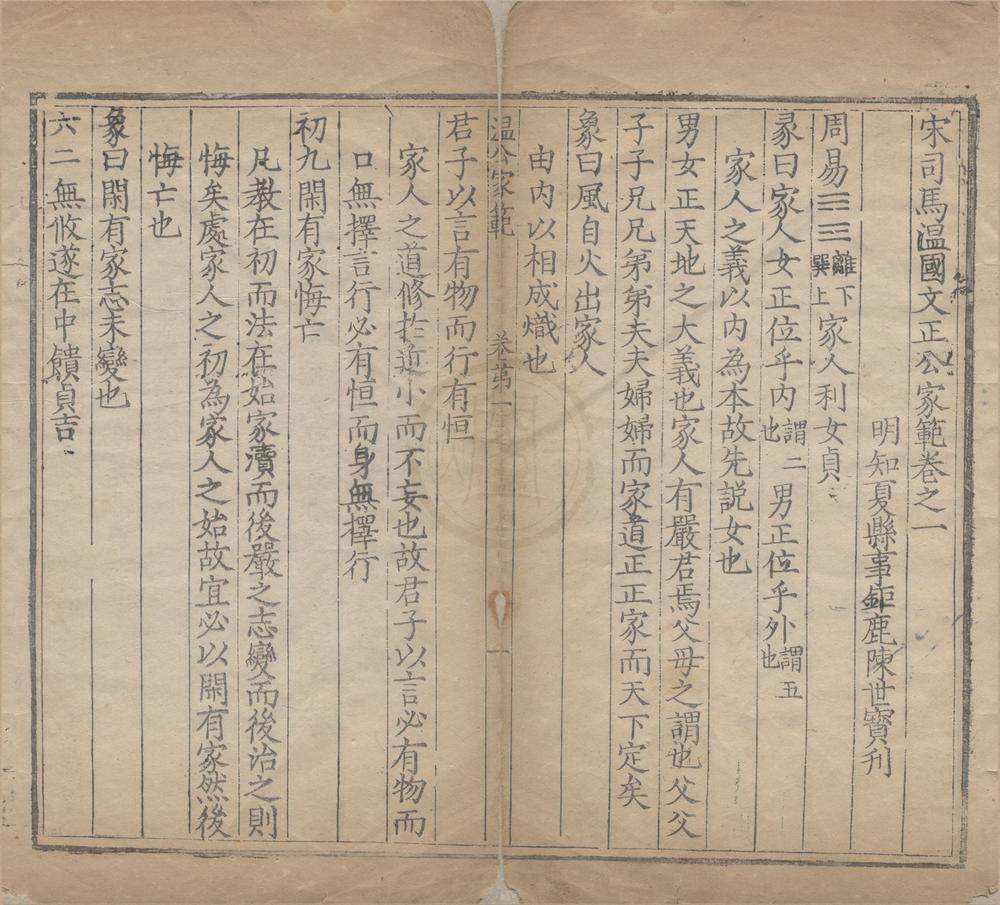 宋司馬溫國文正公家範卷之一
明知夏縣事鉅鹿陳世寶刊
周易☲☴離下巽上家人利女貞
彖曰家人女正位乎內謂二也男正位乎外謂五也
家人之義以內為本故先說女也
男女正天地之大義也家人有嚴君焉父母之謂也父父
子子兄兄弟弟夫夫婦婦而家道正正家而天下定矣
象曰風自火出家人
由內以相成熾也
溫公家範 卷第一 一
君子以言有物而行有恒
家人之道修於近小而不妄也故君子以言必有物而
口無擇言行必有恒而身無擇行
初九閑有家悔亡
凡教在初而法在始家瀆而後嚴之志變而後治之則
悔矣處家人之初為家人之始故宜必以閑有家然後
悔亡也
象曰閑有家志未變也
六二無攸遂在中饋貞吉